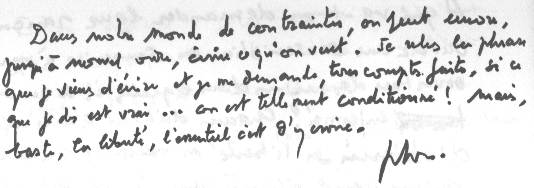 Dans notre monde de contraintes, on peut encore,
jusqu'à nouvel ordre, écrire ce qu'on veut. Je relis les phrases
que je viens d'écrire et je me demande, tous comptes faits, si ce
que je dis est vrai ... on est tellement conditionné ! Mais,
baste, la liberté, l'essentiel c'est d'y croire.